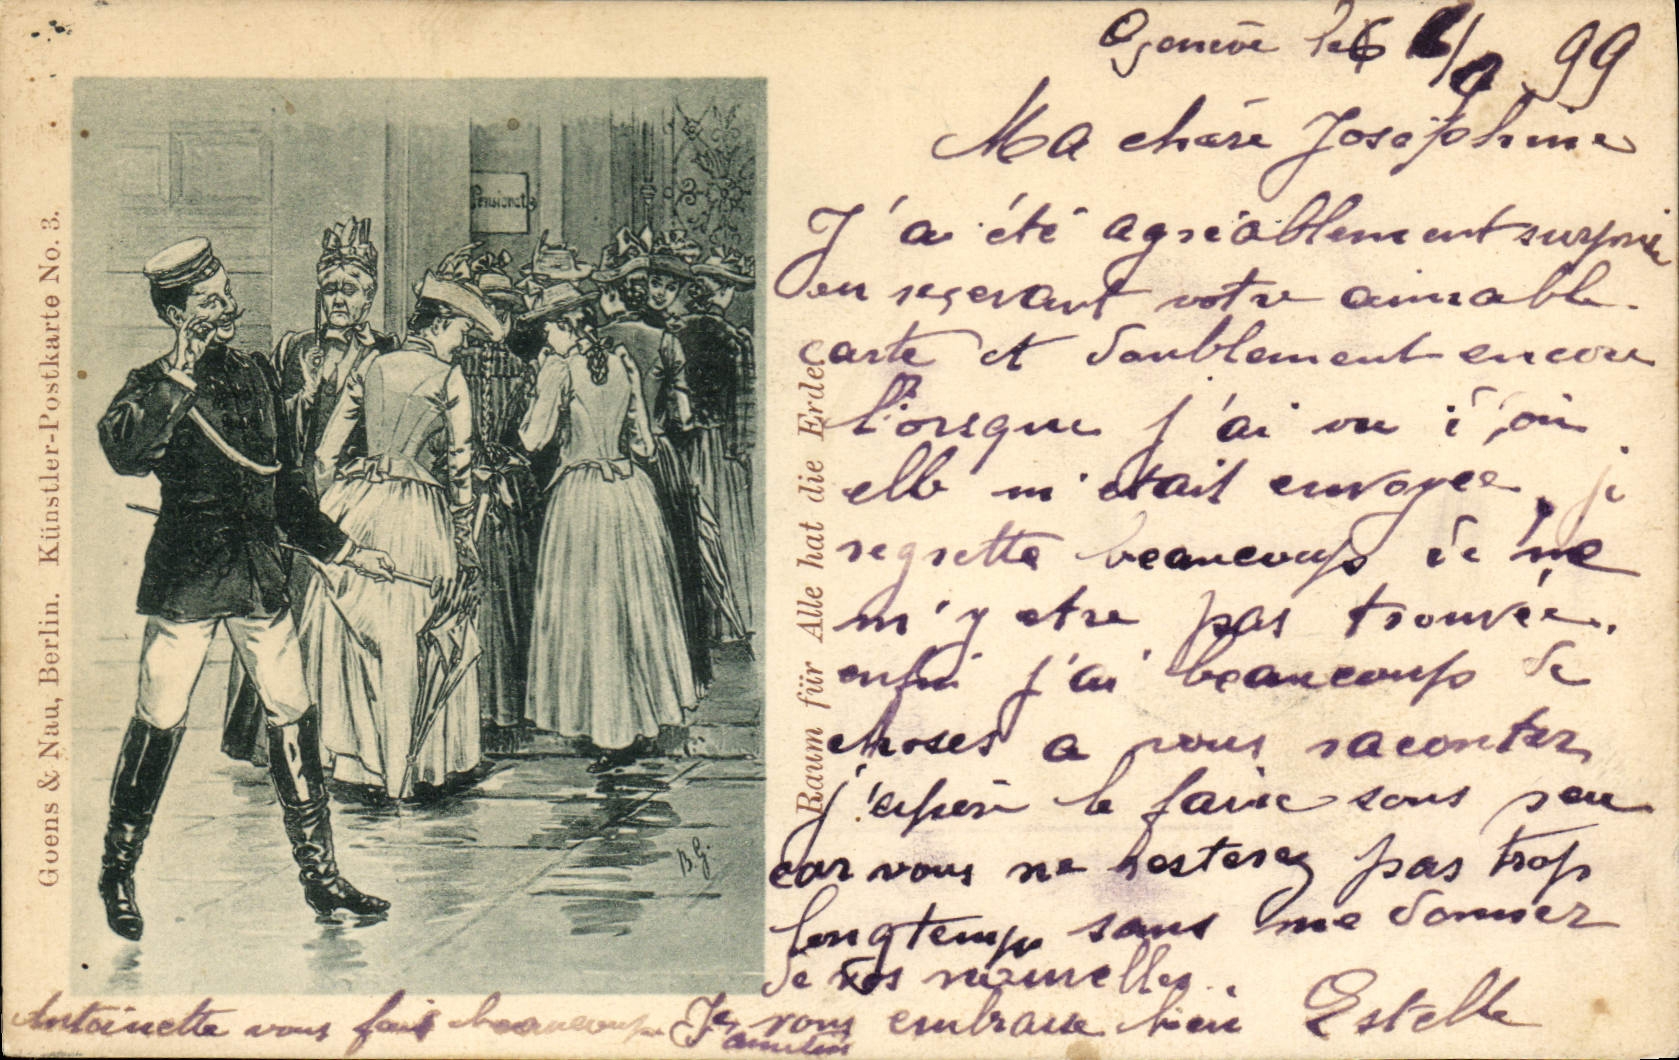 Goens & Nau, Berlin. Künstler-Postkarte No. 3.
Pensionat
B.G.
Raum für Alle hat die Erde.
Genève le 6 99
Ma chère Joséphine
J'ai été agréablement surprise
en reçevant votre aimable
carte et doublement encore
lorsque j'ai vu d'où
elle m'était envoyée, je
regrette beaucoup de me
m'y etre pas trouvée.
enfin j'ai beaucoup de
choses a vous raconter,
j'espère le faire sous peu
car vous ne resterez pas trop
longtemps sans me donner
de vos nouvelles.
Je vous embrasse bien Estelle
Antoinette vous fait beaucoup
amitiés